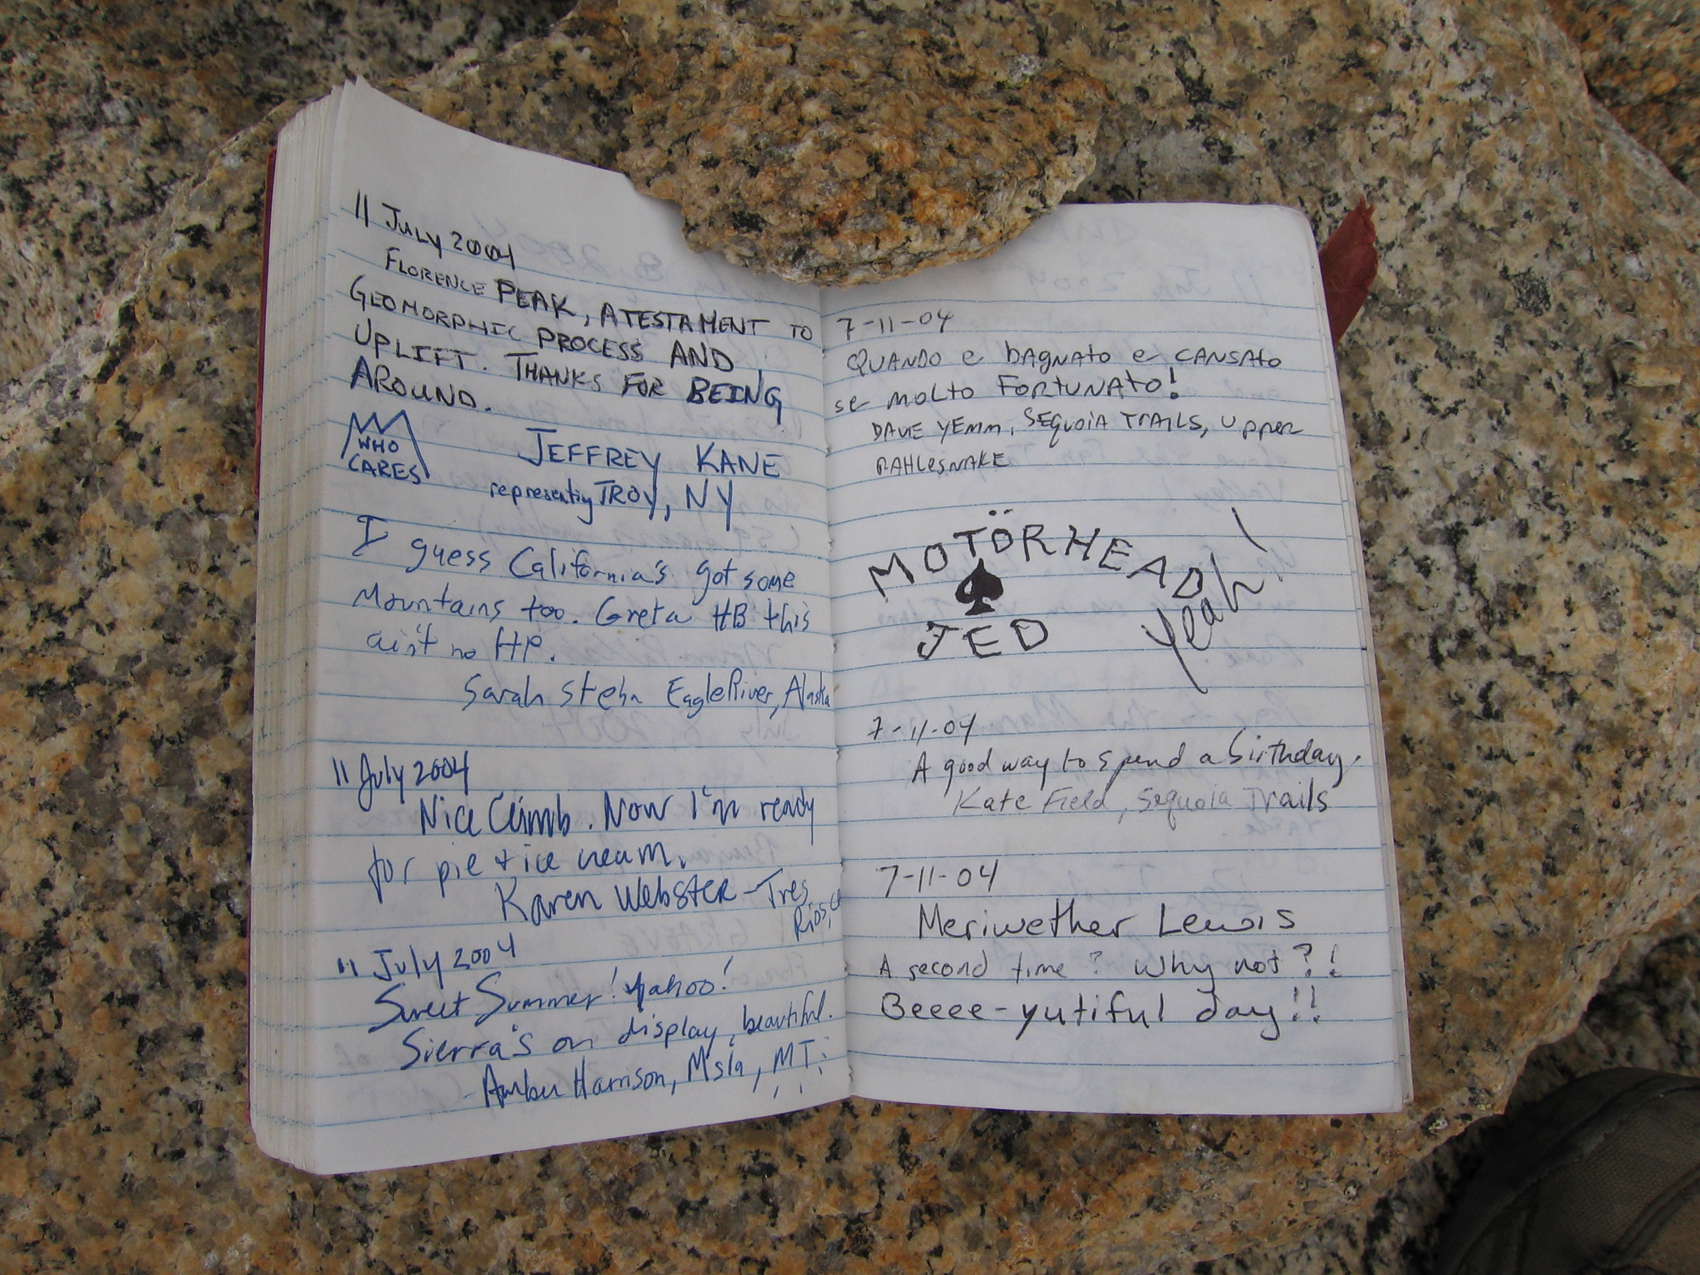 11 July 2004
FLORENCE PEAK, A TESTAMENT TO
GEOMORPHIC PROCESS AND
UPLIFT. THANKS FOR BEING
AROUND.
WHO
CARES
JEFFREY KANE
representing TROY, NY
I guess California's got some
Mountains too. Greta HB this
ain't no HP.
Sarah Stehn Eagle River, Alaska
11 July 2004
Nice Climb. Now I'm ready
for pie + ice cream.
Karen Webster - Tres
Rios, CA
11 July 2004
Sweet Summer! Yahoo!
Sierra's on display, beautiful.
- Amber Harrison, Msla, MT
7-11-04
QUANDO e bagnato e CANSAto
se molto FORTUNAto!
DAVE YEMM, SEQUOIA TRAILS, Upper
RAHLESNAKE
MOTÖRHEAD
Yeah!
JED
7-11-04
A good way to spend a birthday.
Kate Field, Sequoia Trails
7-11-04
Meriwether Lewis
A second time? Why not?!
Beeee-yutiful day!!